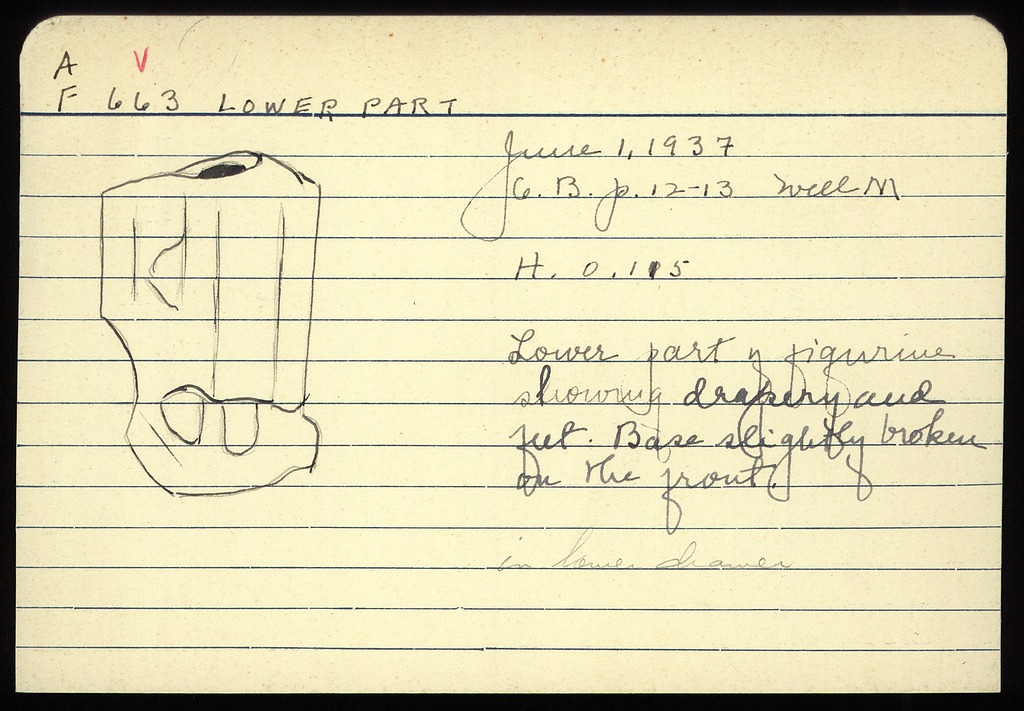 A V
F 663 LOWER PART
June 1, 1937
G. B. p. 12-13 Well M
H. 0.115
Lower part of figurine
showing drapery and
feet. Base slightly broken
on the front.
in lower drawer